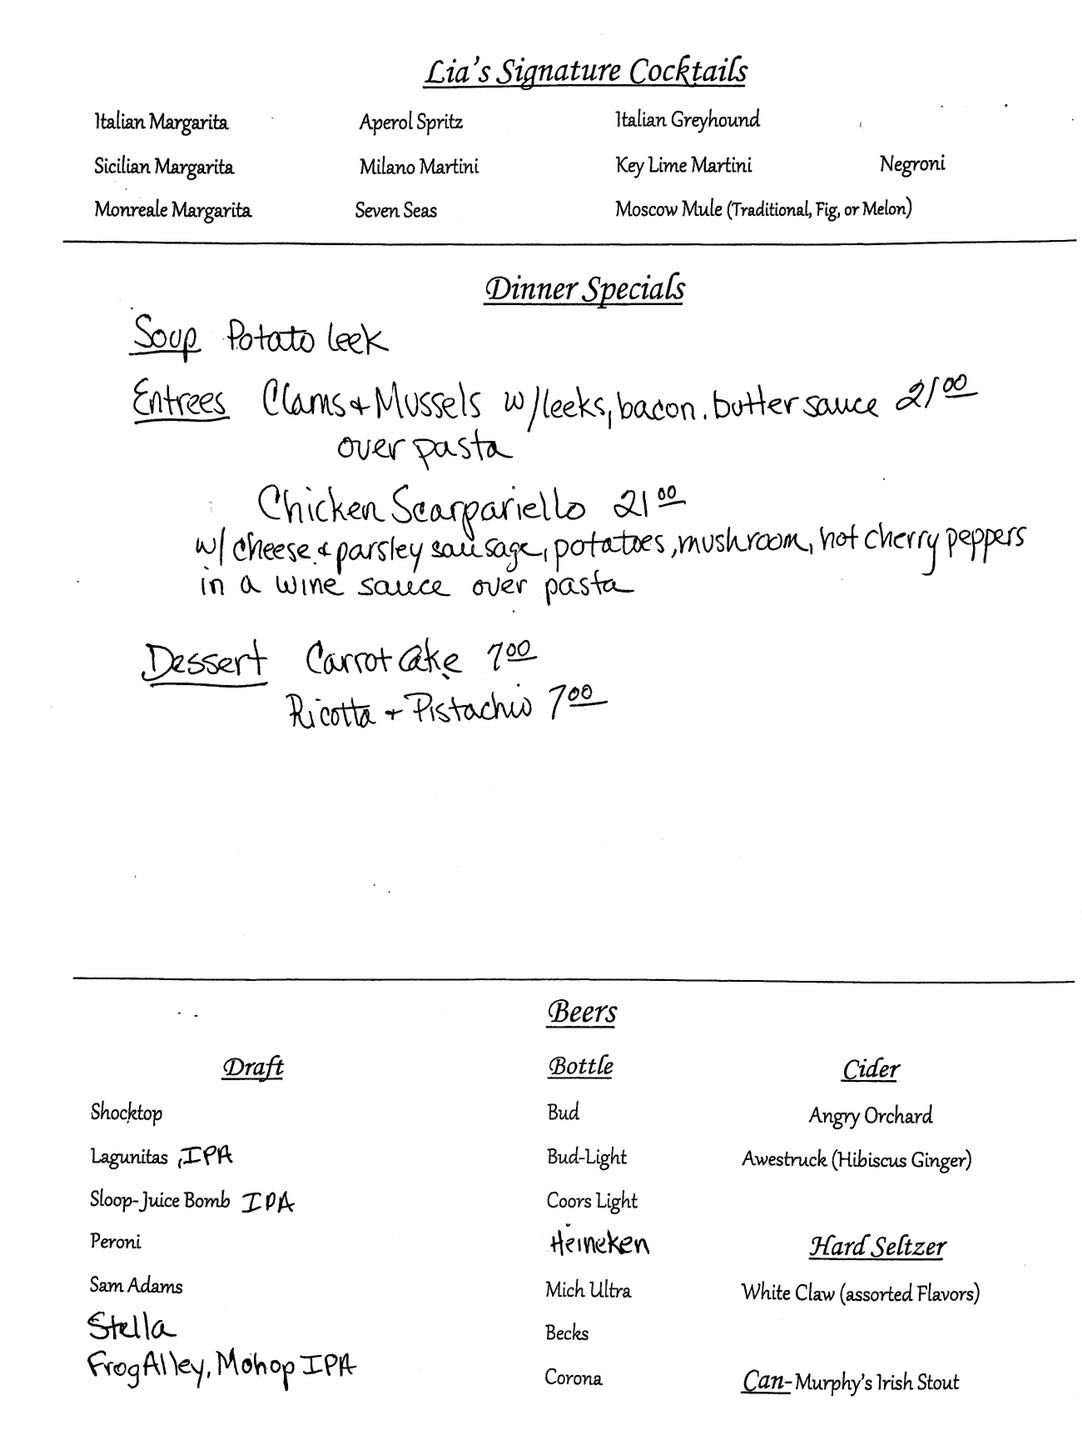 Lia's Signature Cocktails
Italian Margarita Aperol Spritz Italian Greyhound
Sicilian Margarita Milano Martini Key Lime Martini Negroni
Monreale Margarita Seven Seas Moscow Mule (Traditional, Fig, or Melon)
Dinner Specials
Soup Potato leek
Entrees Clams + Mussels w/leeks, bacon. butter sauce 21 00
over pasta
Chicken Scarpariello 21 00
w/ cheese + parsley sausage, potatoes, mushroom, hot cherry peppers
in a wine sauce over pasta
Dessert Carrot Cake 7 00
Ricotta + Pistachio 7 00
Beers
Draft
Shocktop
Lagunitas, IPA
Sloop-Juice Bomb IPA
Peroni
Sam Adams
Stella
Frog Alley, Mohop IPA
Bottle
Bud
Bud-Light
Coors Light
Heineken
Mich Ultra
Becks
Corona
Cider
Angry Orchard
Awestruck (Hibiscus Ginger)
Hard Seltzer
White Claw (assorted Flavors)
Can- Murphy's Irish Stout